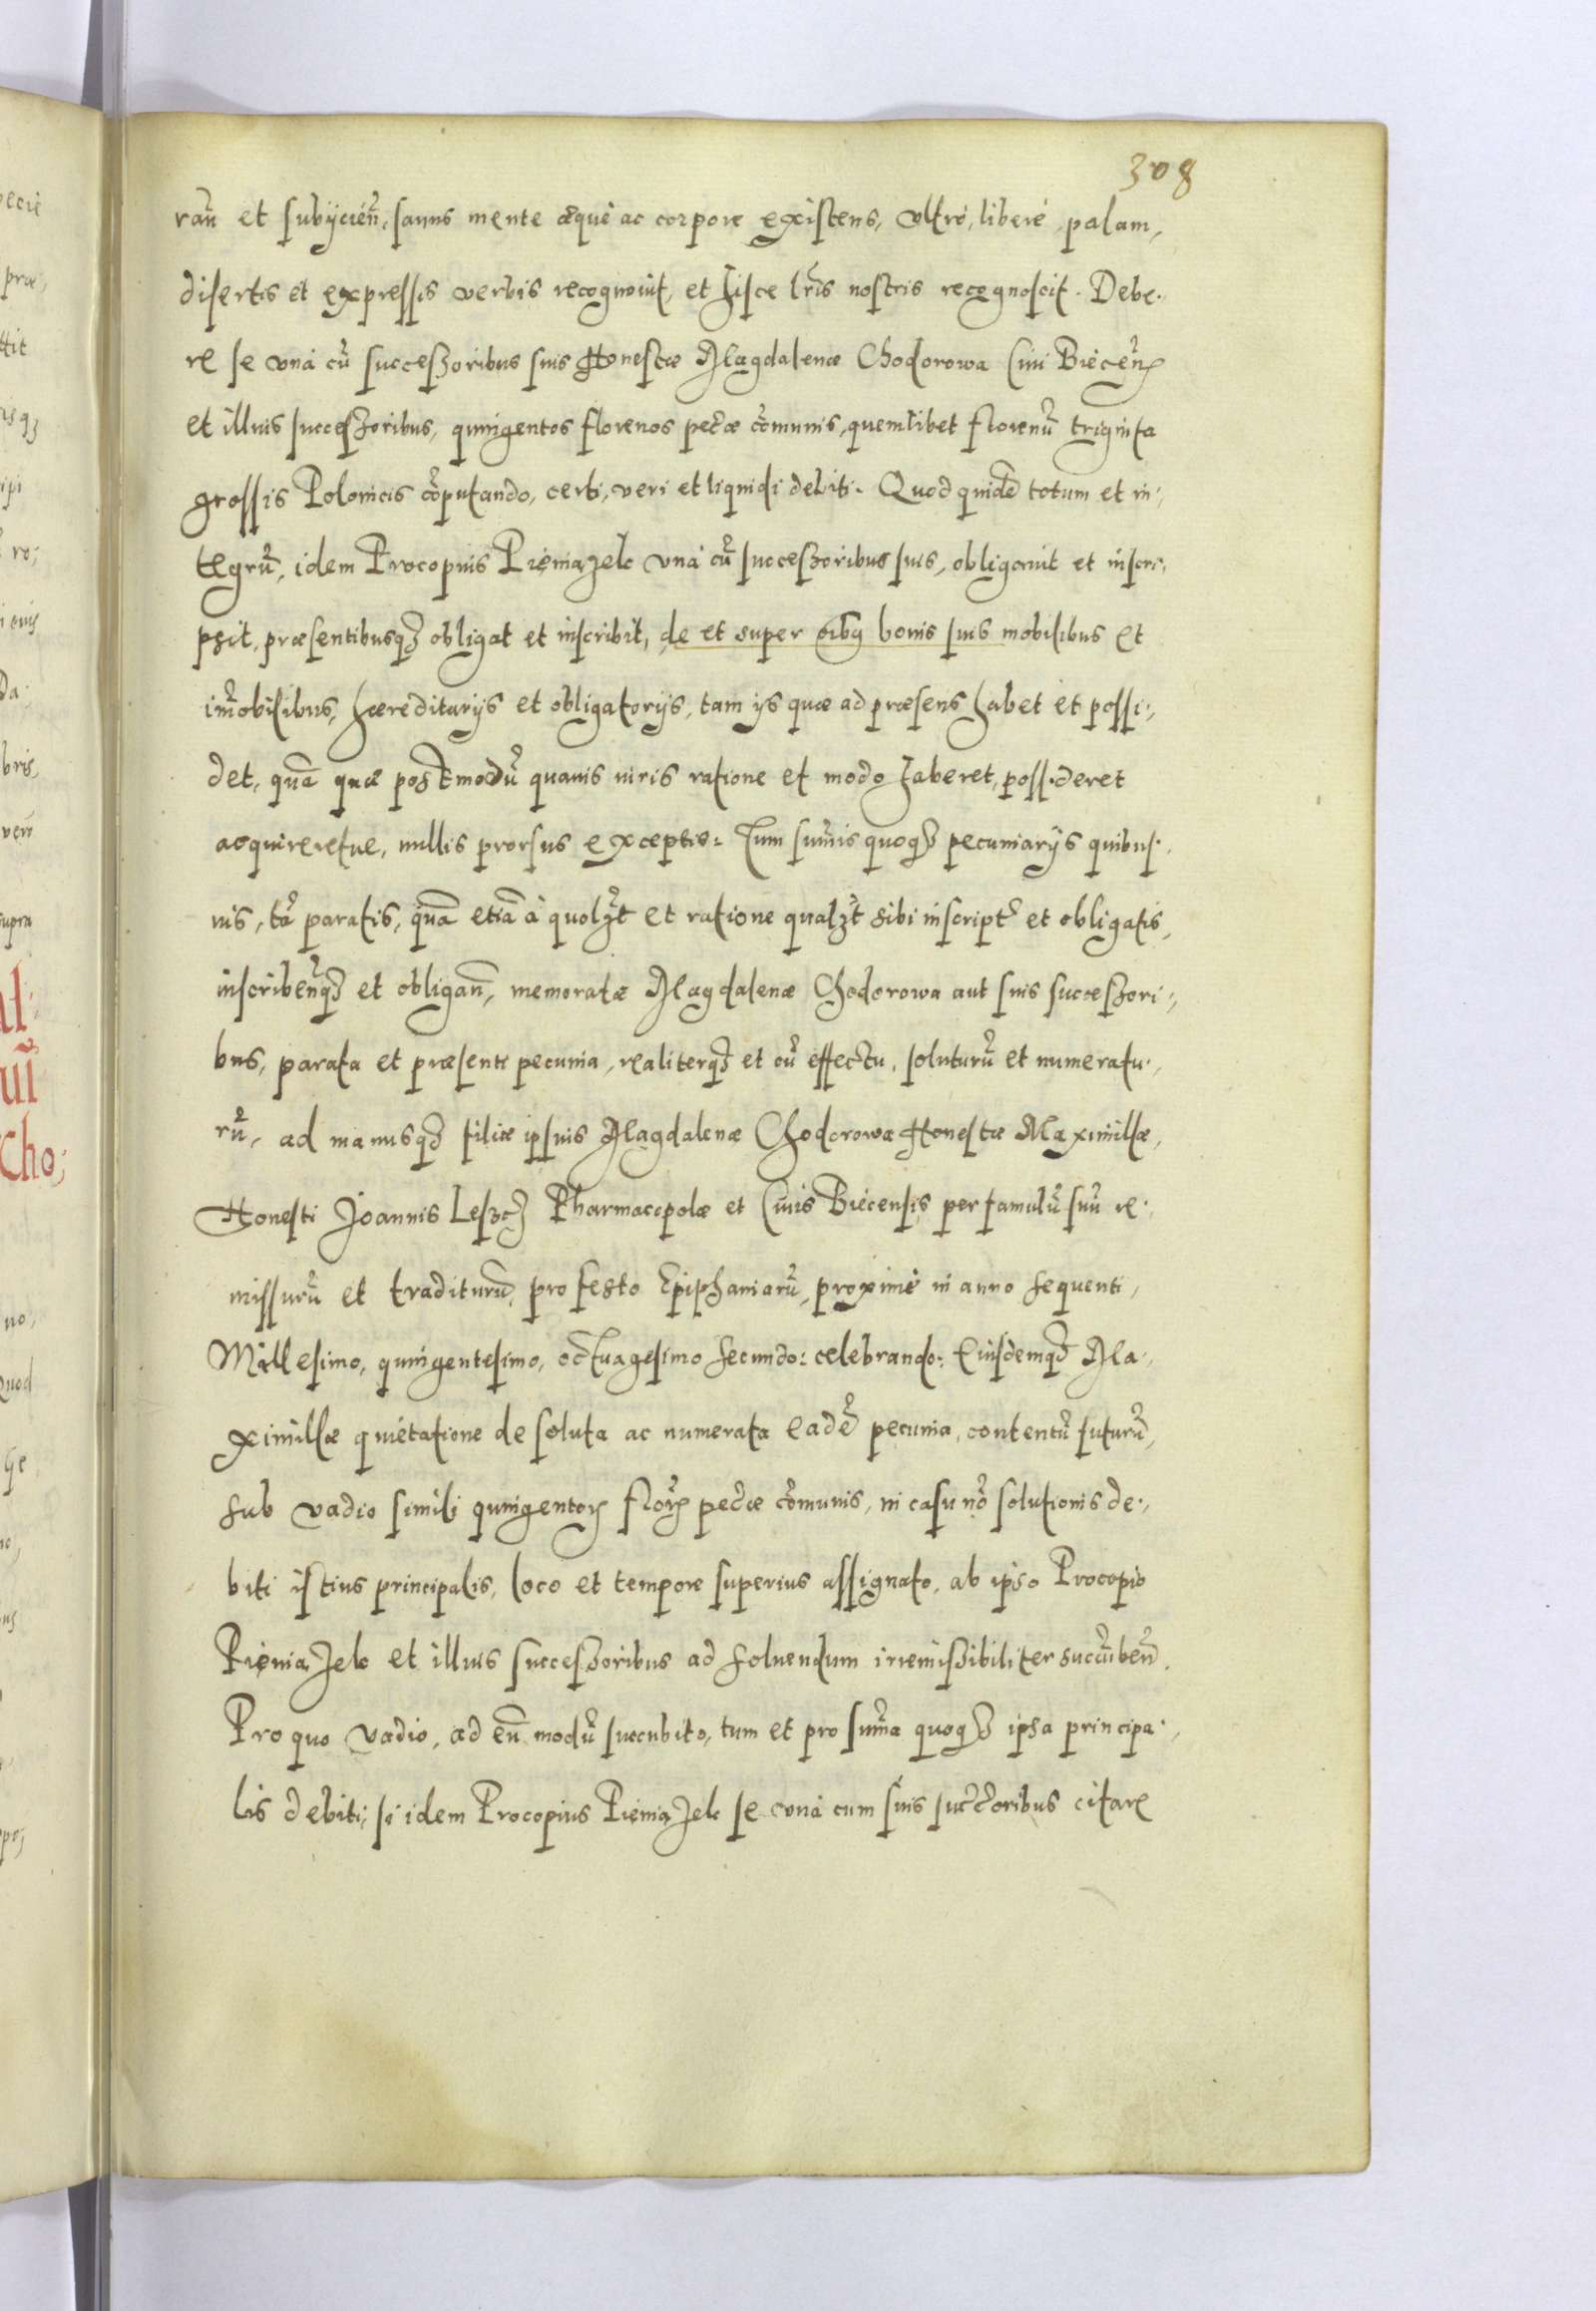 308
rañ et subÿcieñ, sanus mente æquè ac corpore existens, ultrò, liberè, palam,
disertis et expressis verbis recognovit, et hisce lr̃is nostris recognoscit. Debe-
re se unà cũ successoribus suis Honestæ Magdalenæ Chodorowa Civi Biecen̄
et illius successoribus, quingentos florenos pec̃æ cõmunis, quemlibet florenũ triginta
grossis Polonicis cõputando, certi, veri et liquidi debiti. Quod quidẽ totum et in-
tegrũ, idem Procopius Pieniążek unà cũ successoribus suis, obligavit et inscri-
psit, præsentibusq3 obligat et inscribit, de et super oĩbus bonis suis mobilibus et
im̃obilibus, hæreditarÿs et obligatorÿs, tam ÿs quæ ad præsens habet et possi-
det, quã quæ postmodũ quavis iuris ratione et modo haberet, possideret
acquireretve, nullis prorsus exceptis: Tum sum̃is quoq3 pecuniarÿs quibus-
vis, tã paratis, quã etiã à quolz̃t et ratione qualz̃t sibi inscript̃ et obligatis,
inscribeñq3 et obligañ, memoratæ Magdalenæ Chodorowa aut suis successori-
bus, parata et præsenti pecunia, realiterq3 et cũ effectu, soluturũ et numeratu-
rũ, ad manusq3 filiæ ipsius Magdalenæ Chodorowa Honestæ Maximillæ,
Honesti Joannis Leszcz Pharmacopolæ et Civis Biecensis per famulũ suũ re-
missurũ et traditurũ, pro festo Epiphaniarũ, proximè in anno sequenti,
Millesimo, quingentesimo, octuagesimo secundo: celebrando: Eiusdemq3 Ma-
ximillæ quietatione de soluta ac numerata eadẽ pecunia, contentũ futurũ,
sub vadio simili quingentoꝝ floꝝ pec̃æ cõmunis, in casu nõ solutionis de-
biti istius principalis, loco et tempore superius assignato, ab ipso Procopio
Pieniążek et illius successoribus ad solvendum irremissibiliter succũbeñ.
Pro quo vadio, ad eũ modũ succubito, tum et pro sum̃a quoq3 ipsa principa-
lis debiti, si idem Procopius Pieniążek se unà cum suis succ̃oribus citare